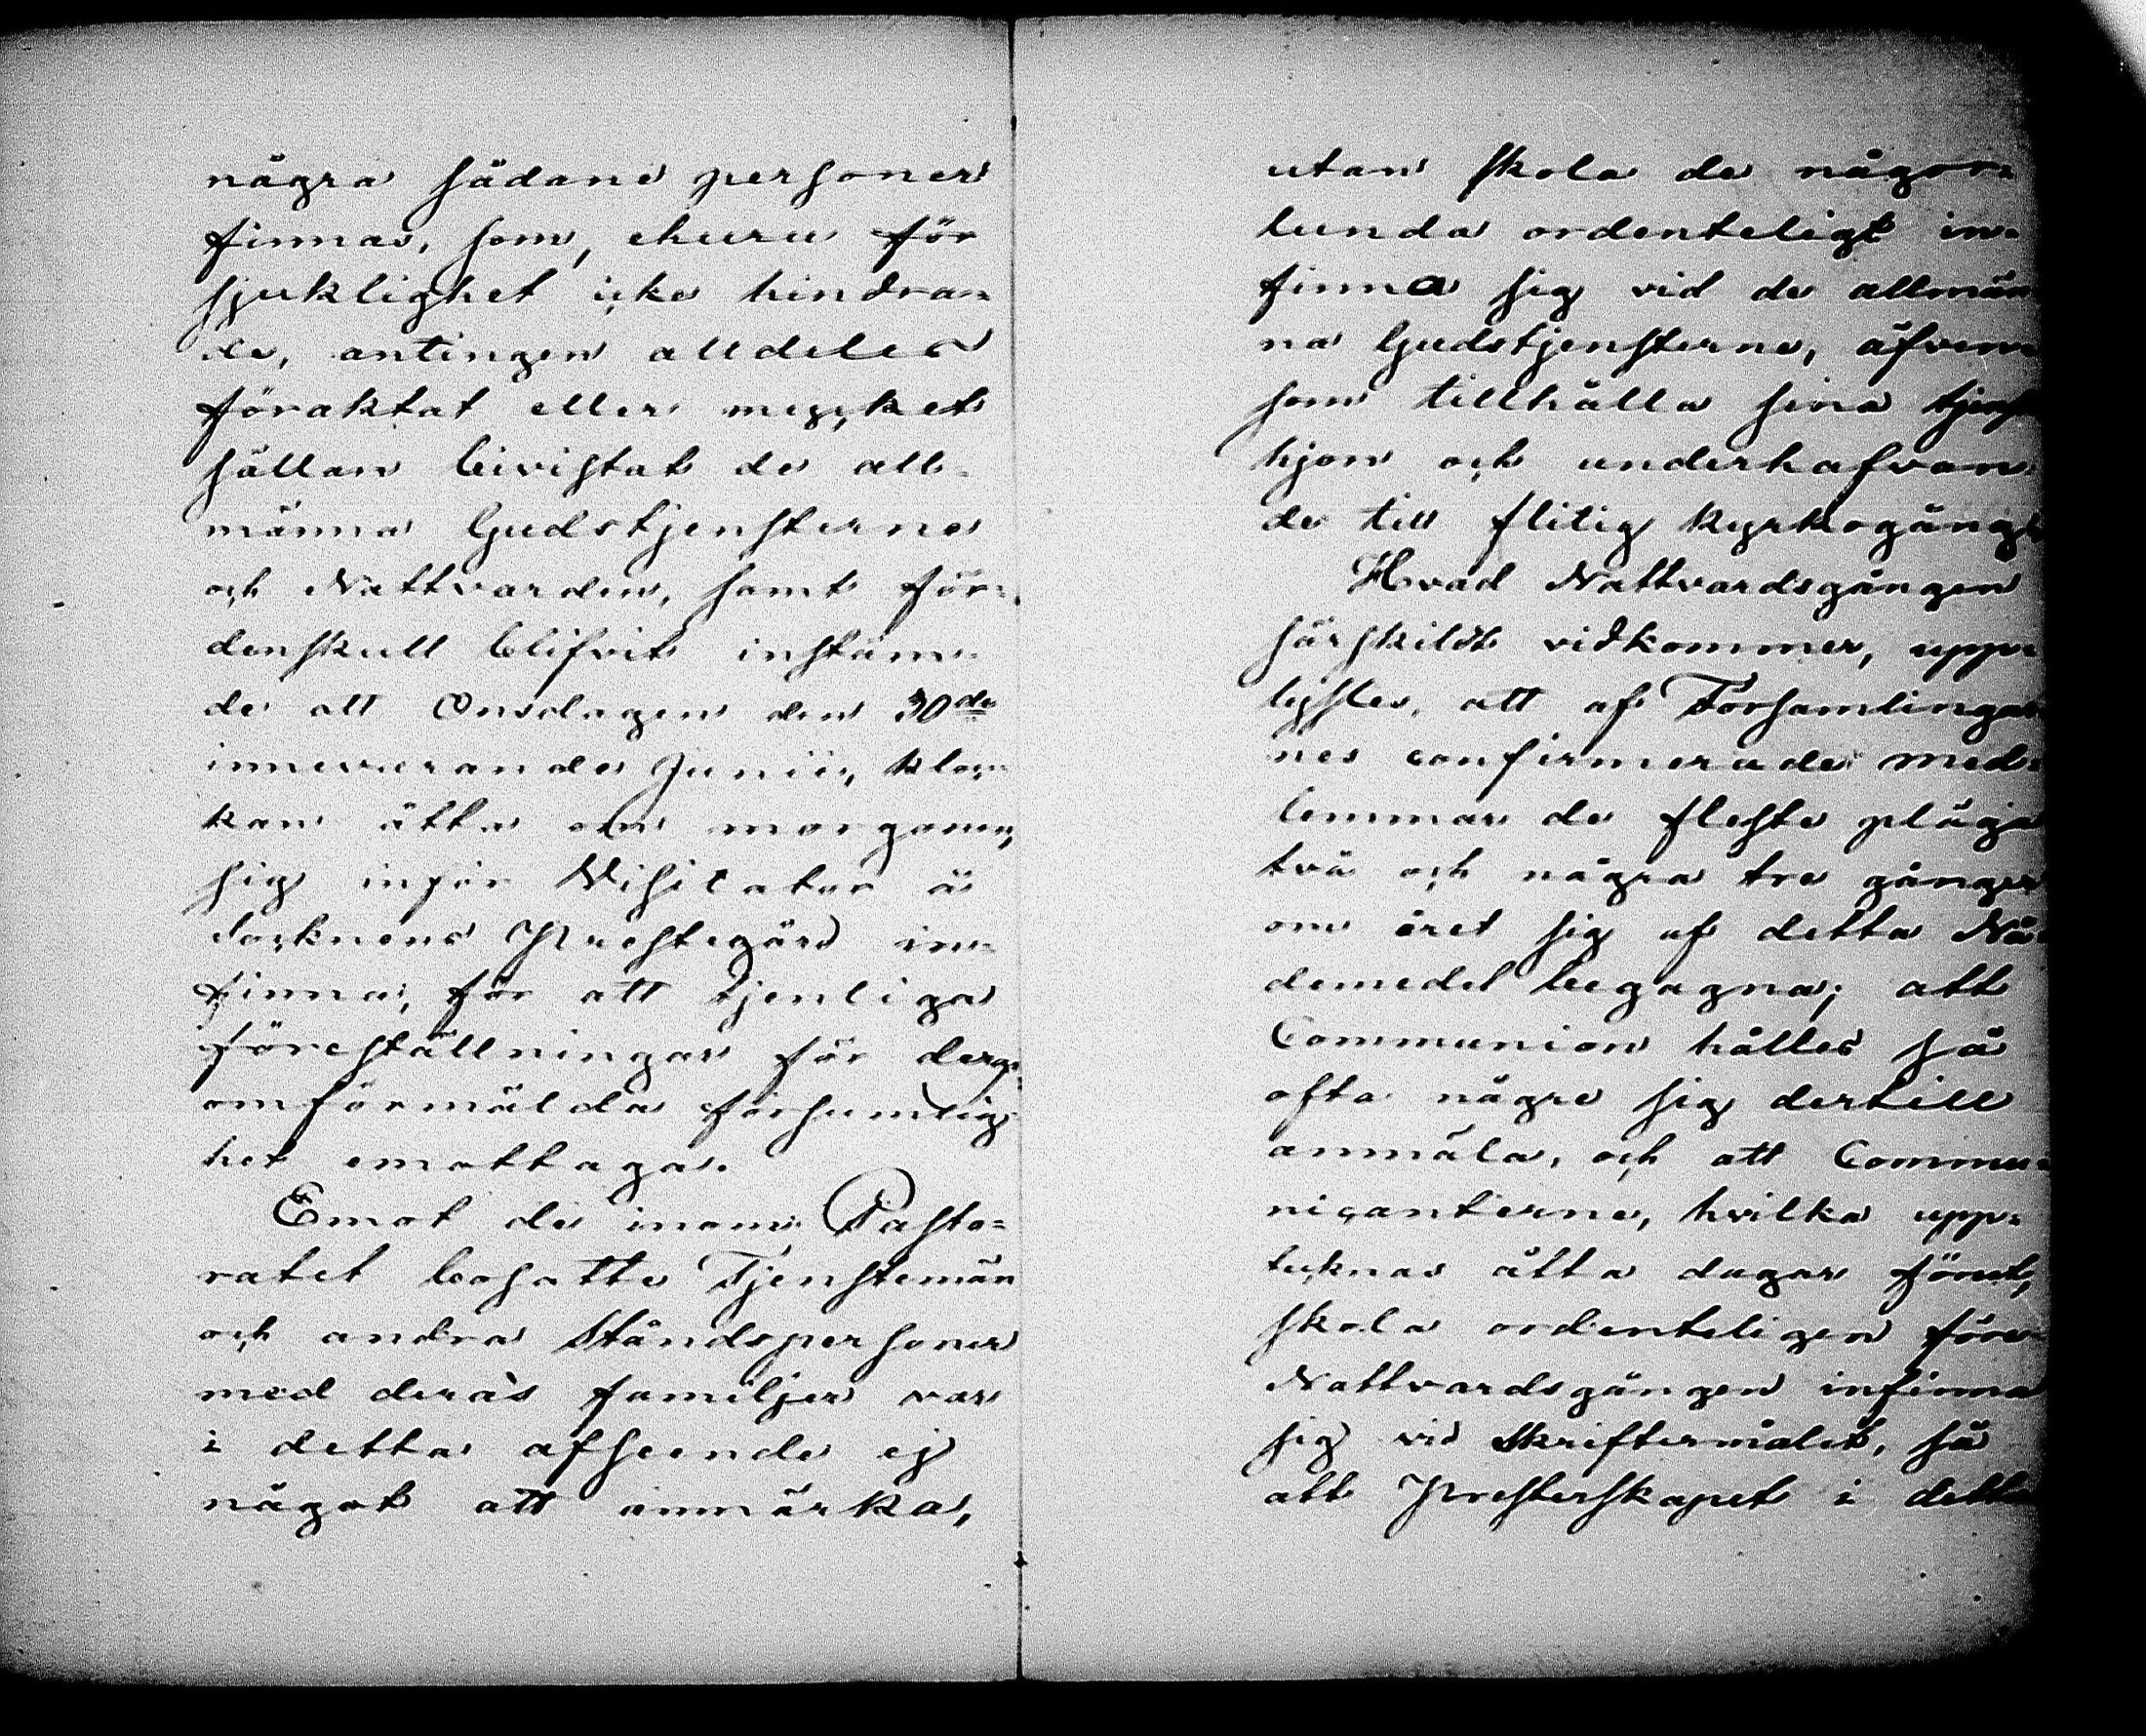 några sådane personer
finnas, som, ehuru för
sjuklighet icke hindra=
de, antingen alldeles
föraktat eller mycket
sällan bivistat de all=
männa Gudstjensterne
och Nattvarden, samt för=
denskull blifvit instäm=
de att Onsdagen den 30de
innevarande Junii, kloc=
kan åtta om morgonen,
sig inför Visitator å
Socknens Prestegård in=
finna, för att tjenliga
föreställningar för der=
omförmälda försumlig=
het emottaga.
Emot de inom Pasto=
ratet bosatte Tjenstemän
och andra Ståndspersoner
med deras familjer var
i detta afseende ej
något att anmärka,
utan skola de någor=
lunda ordenteligt in=
finna sig vid de allmän
na Gudstjensterne, äfven
som tillhålla sina tjenst
hjon och underhafvan
de till flitig kyrkogång
Hvad Nattvardsgången
särskildt vidkommer, upp=
lystes, att af Församlingar
nes confirmerade med=
lemmar de fleste pläga
två och några tre gånger
om året sig af detta Nå=
demedel begagna; att
Communion hålles så
ofta några sig dertill
anmäla, och att Commu=
nicanterne, hvilka upp=
tecknas åtta dagar förut,
skola ordenteligen före
Nattvardsgången infinna
sig vid Skriftermålet, så
att Presterskapet i detta